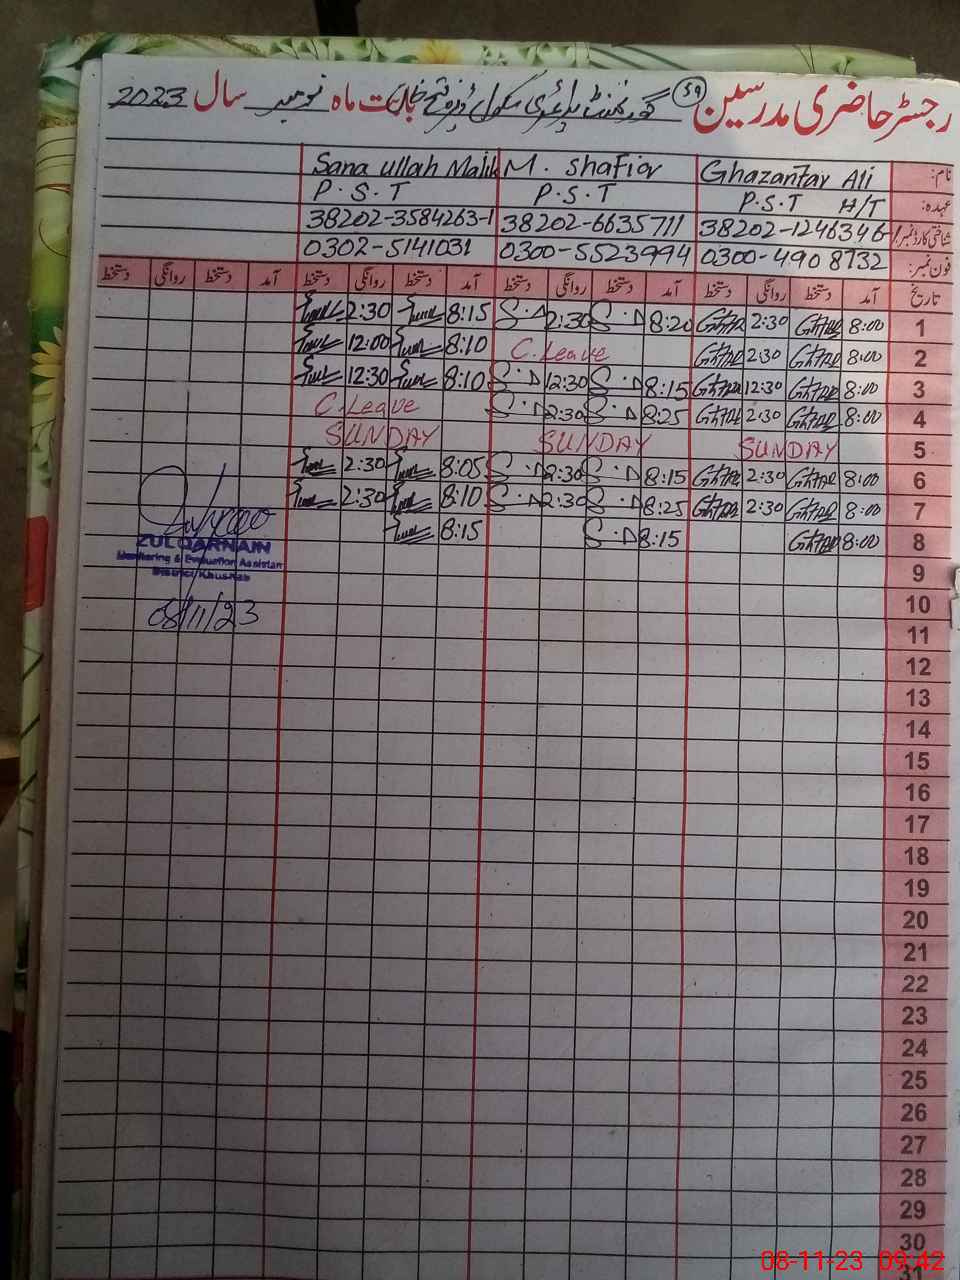 رجسٹر حاضری مدرسین 59 گورنمنٹ پرائمری سکول ڈیرہ فتح خان بابت ماہ نومبر سال 2023
نام: Ghazanfar Ali M. Shafiq Sana ullah Malik
عہدہ: P.S.T H/T P.S.T P.S.T
شناختی کارڈ نمبر: 38202-1246346-1 38202-6635711 38202-3584263-1
فون نمبر: 0300-4908732 0300-5523994 0302-5141031
تاریخ آمد دستخط روانگی دستخط آمد دستخط روانگی دستخط آمد دستخط روانگی دستخط آمد دستخط روانگی دستخط
1 8:00 2:30 8:20 2:30 8:15 2:30
2 8:00 2:30 C.Leave 8:10 12:00
3 8:00 12:30 8:15 12:30 8:10 12:30
4 8:00 2:30 8:25 2:30 C.Leave
5 SUNDAY SUNDAY SUNDAY
6 8:00 2:30 8:15 2:30 8:05 2:30
7 8:00 2:30 8:25 2:30 8:10 2:30
8 8:00 8:15 8:15
ZULQARNAIN
Monitoring & Evaluation Assistan
District Khushab
08/11/23
9
10
11
12
13
14
15
16
17
18
19
20
21
22
23
24
25
26
27
28
29
30
31
08-11-23 09:42